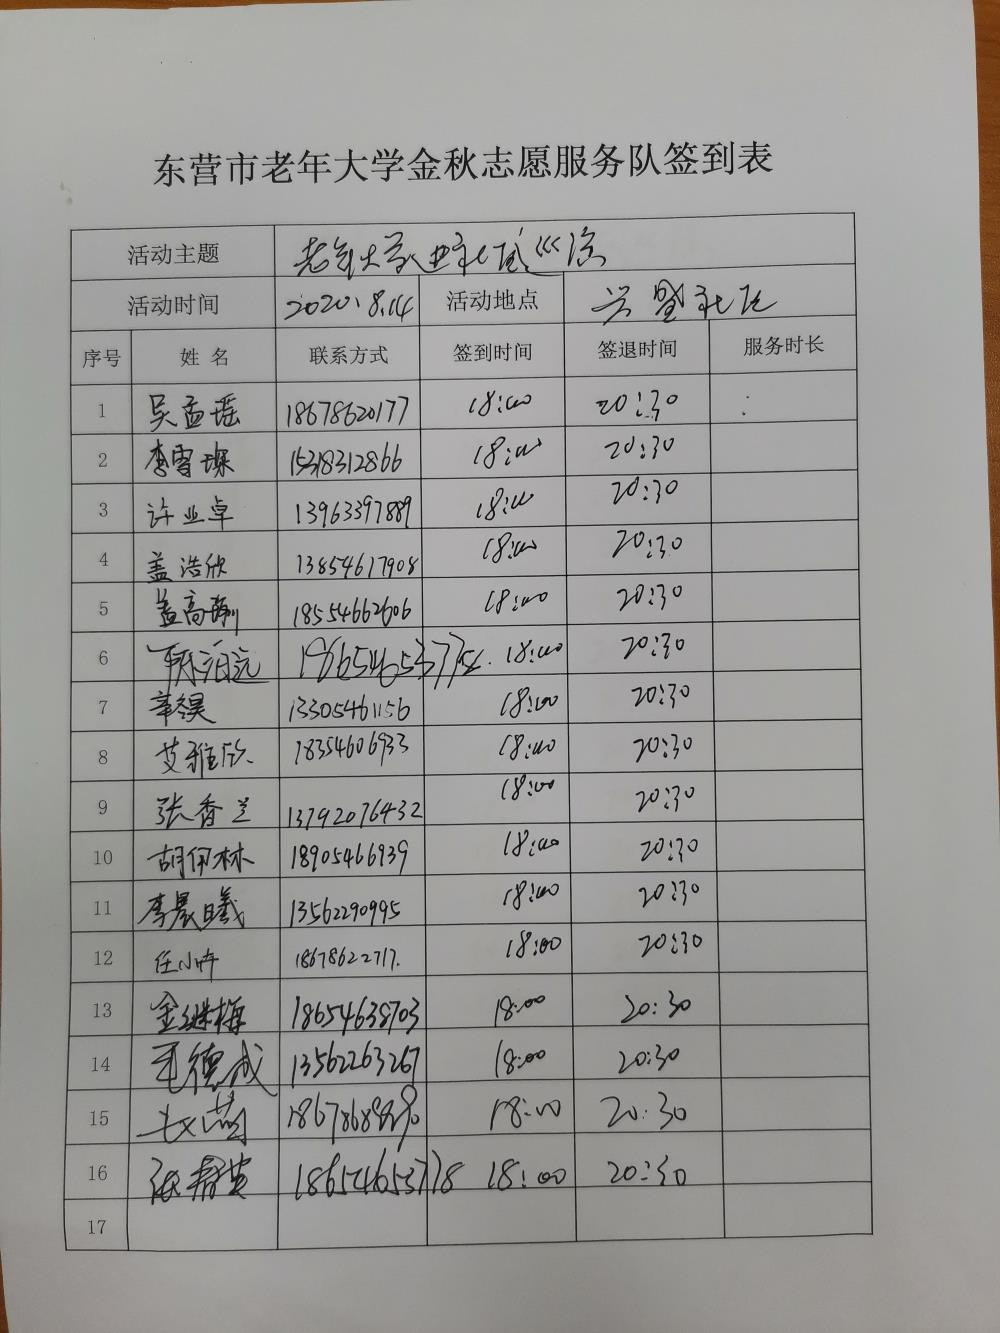 东营市老年大学金秋志愿服务队签到表
活动主题 老年大学进社区巡演
活动时间 2020.8.14 活动地点 兴盛社区
序号 姓名 联系方式 签到时间 签退时间 服务时长
1 吴孟瑶 18678620177 18:00 20:30
2 李雪琛 15318312866 18:00 20:30
3 许业卓 13963397889 18:00 20:30
4 盖浩欣 13854617908 18:00 20:30
5 盖高 18554662606 18:00 20:30
6 18:00 20:30
7 13305461156 18:00 20:30
8 艾雅欣 18354606933 18:00 20:30
9 张香兰 13792076432 18:00 20:30
10 胡伊林 18905466939 18:00 20:30
11 李晨曦 13562290995 18:00 20:30
12 任小卉 18678622717. 18:00 20:30
13 金继梅 18654638703 18:00 20:30
14 毛德成 13562263267 18:00 20:30
15 18:00 20:30
16 18654653778 18:00 20:30
17